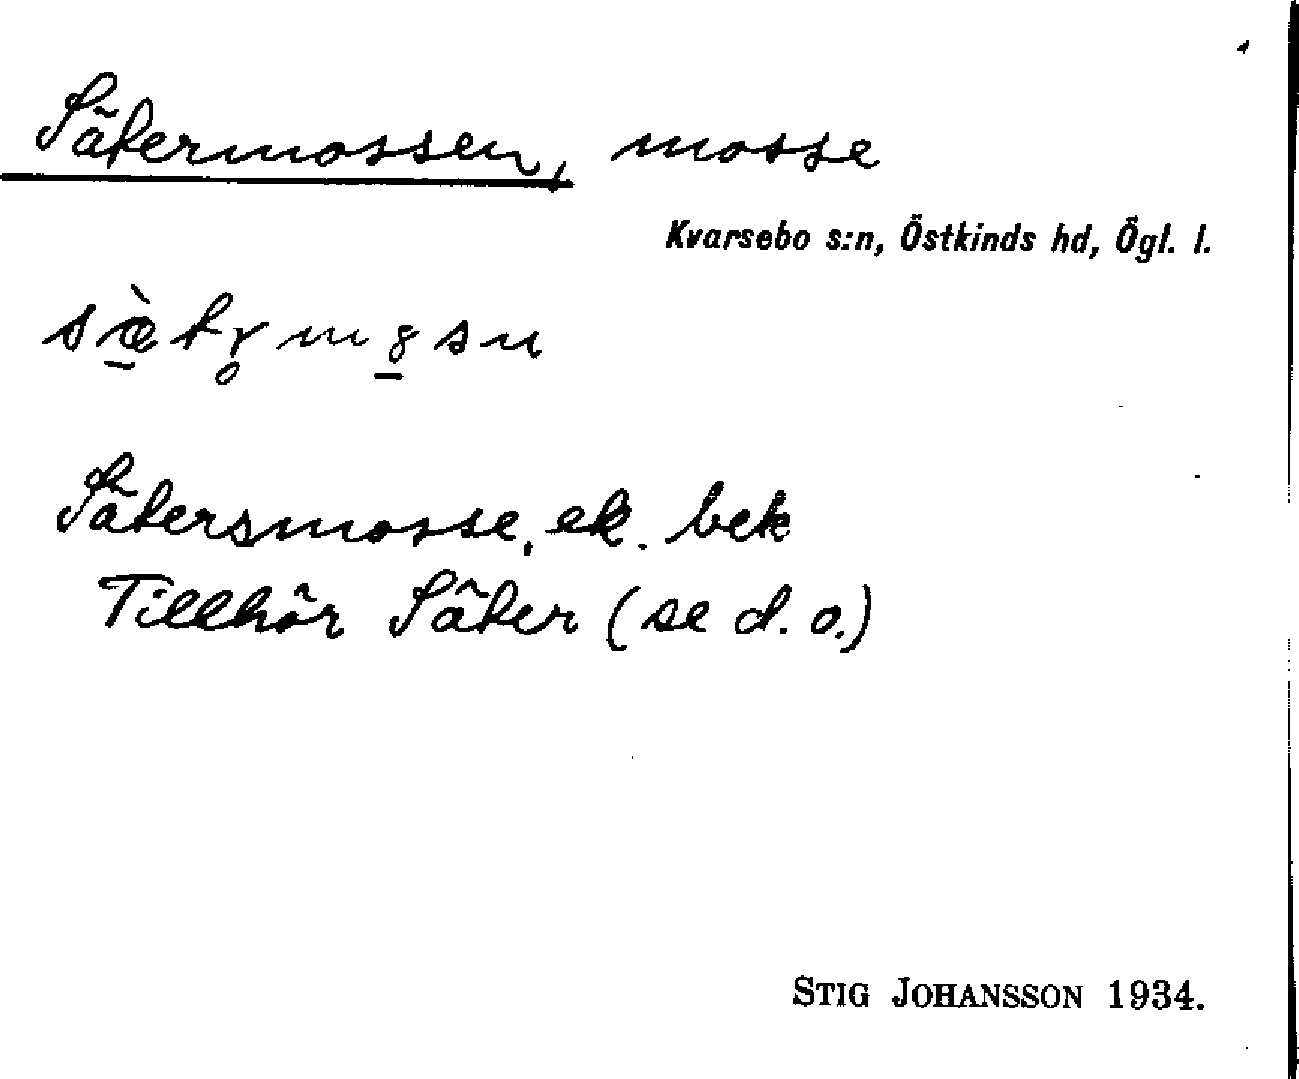 Sätermossen, mosse
Kvarsebo s:n, Östkinds hd, Ögl. l.
Sätersmosse, ek. bek
Tillhör Säter (se d. o.)
STIG JOHANSSON 1934.